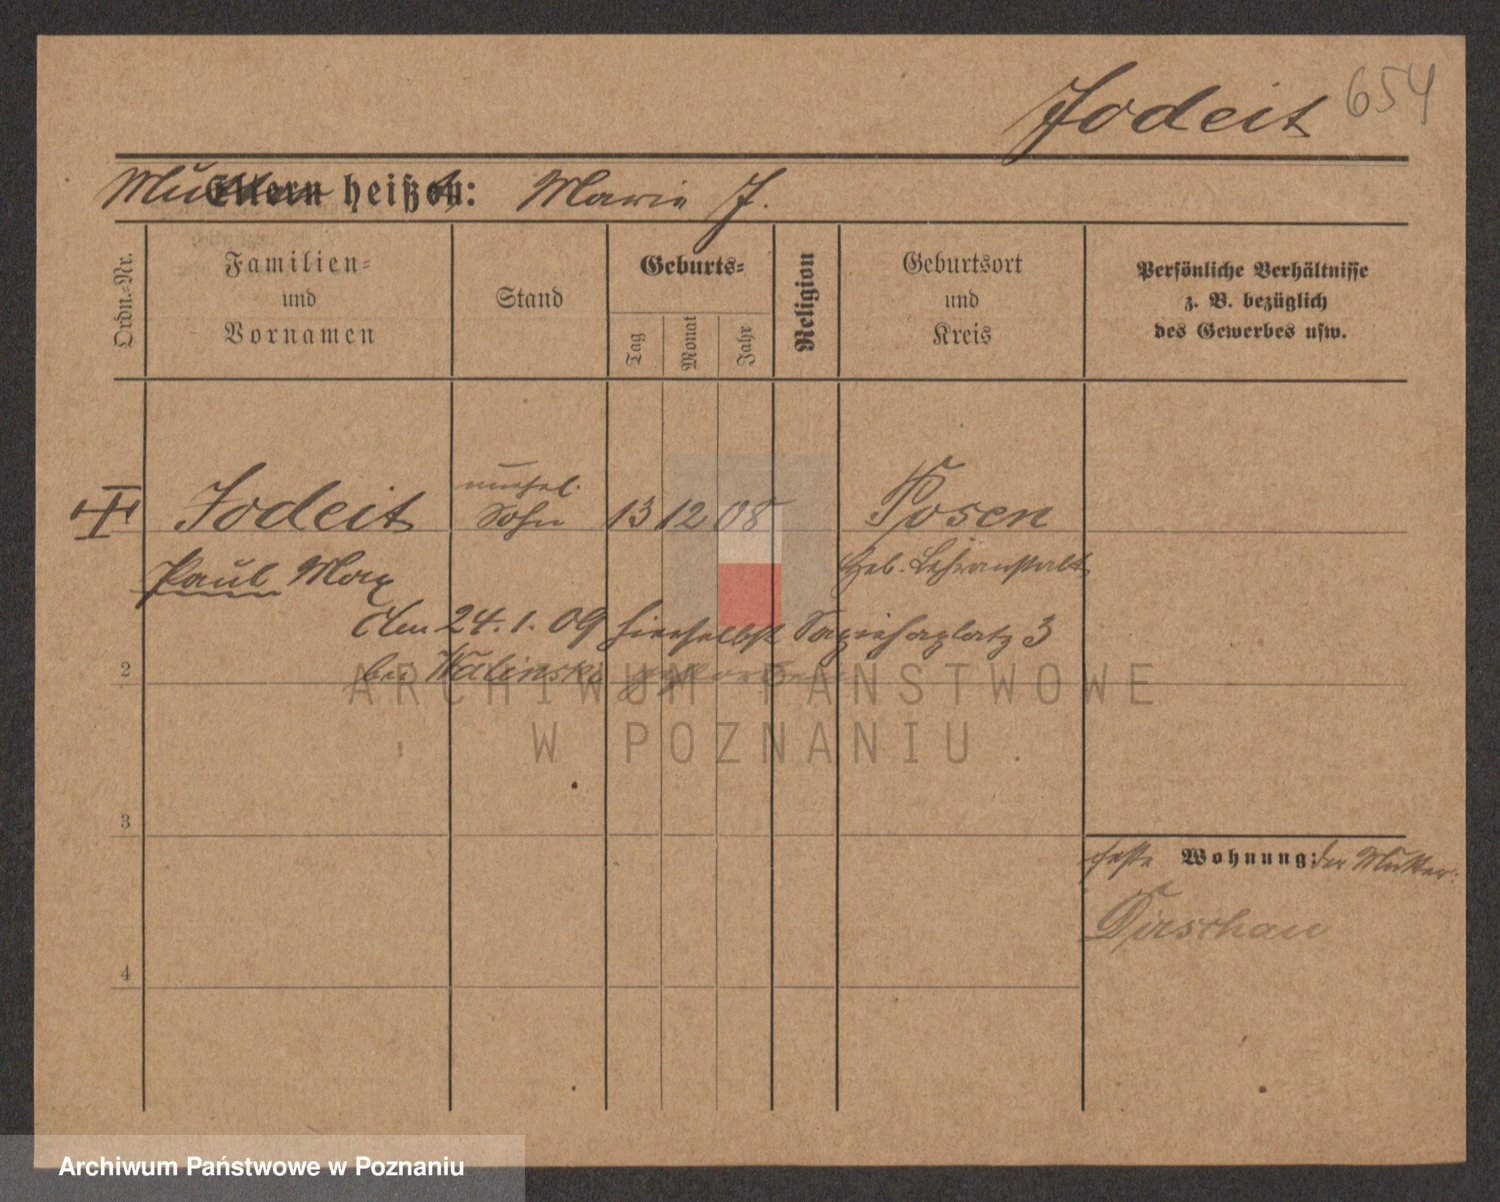 Jodeit 654
Mutter heißt: Marie J.
Ordn.-Nr.
Familien-
und
Vornamen
Stand
Geburts-
Tag
Monat
Jahr
Religion
Geburtsort
und
Kreis
Persönliche Verhältnisse
z. B. bezüglich
des Gewerbes usw.
unehel.
Jodeit Sohn 13 12 08 Posen
Paul Max Heb. Lehranstalt
Am 24.1.09 hierselbst Sapiehaplatz 3
2 bei Walinski gestorben
ARCHIWUM PAŃSTWOWE
W POZNANIU
3
feste Wohnung: der Mutter:
Dirschau
4
Archiwum Państwowe w Poznaniu